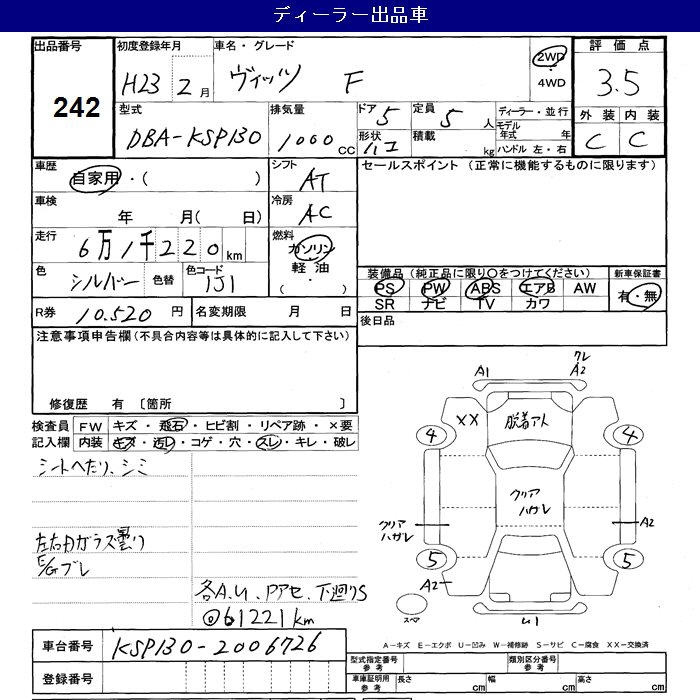 ディーラー出品車
出品番号 242
初度登録年月 H23 2月
車名・グレード ヴィッツ F
2WD ・ 4WD
評価点 3.5
型式 DBA-KSP130
排気量 1000 CC
ドア 5
形状 ハコ
定員 5 人
積載 kg
ディーラー・並行
モデル年式 年
ハンドル 左・右
外装 C
内装 C
車歴 自家用・( )
シフト AT
セールスポイント (正常に機能するものに限ります)
車検 年 月( 日)
冷房 AC
走行 6万1千220km
燃料 ガソリン 軽油 ( ・ )
色 シルバー 色替
色コード 1J1
装備品(純正品に限り○をつけてください)
PS PW ABS エアB AW
SR ナビ TV カワ
新車保証書 有・無
R券 10.520 円
名変期限 月 日
後日品
注意事項申告欄(不具合内容等は具体的に記入して下さい)
修復歴 有 〔箇所 〕
検査員記入欄
FW キズ・飛石・ヒビ割・リペア跡・×要
内装 キズ・汚レ・コゲ・穴・スレ・キレ・破レ
シートへたり、シミ
左右Hガラス曇り
E/Gブレ
各A.U、Pアセ、下廻りS
@61221km
A1
クレ
A2
XX
脱着アト
4
4
クリア
ハガレ
クリア
ハガレ
A2
5
5
A2
スペア
U1
車台番号 KSP130-2006726
A-キズ E-エクボ U-凹み W-補修跡 S-サビ C-腐食 XX-交換済
登録番号
型式指定番号 参考
類別区分番号 参考
車庫証明用 参考
長さ cm
幅 cm
高さ cm